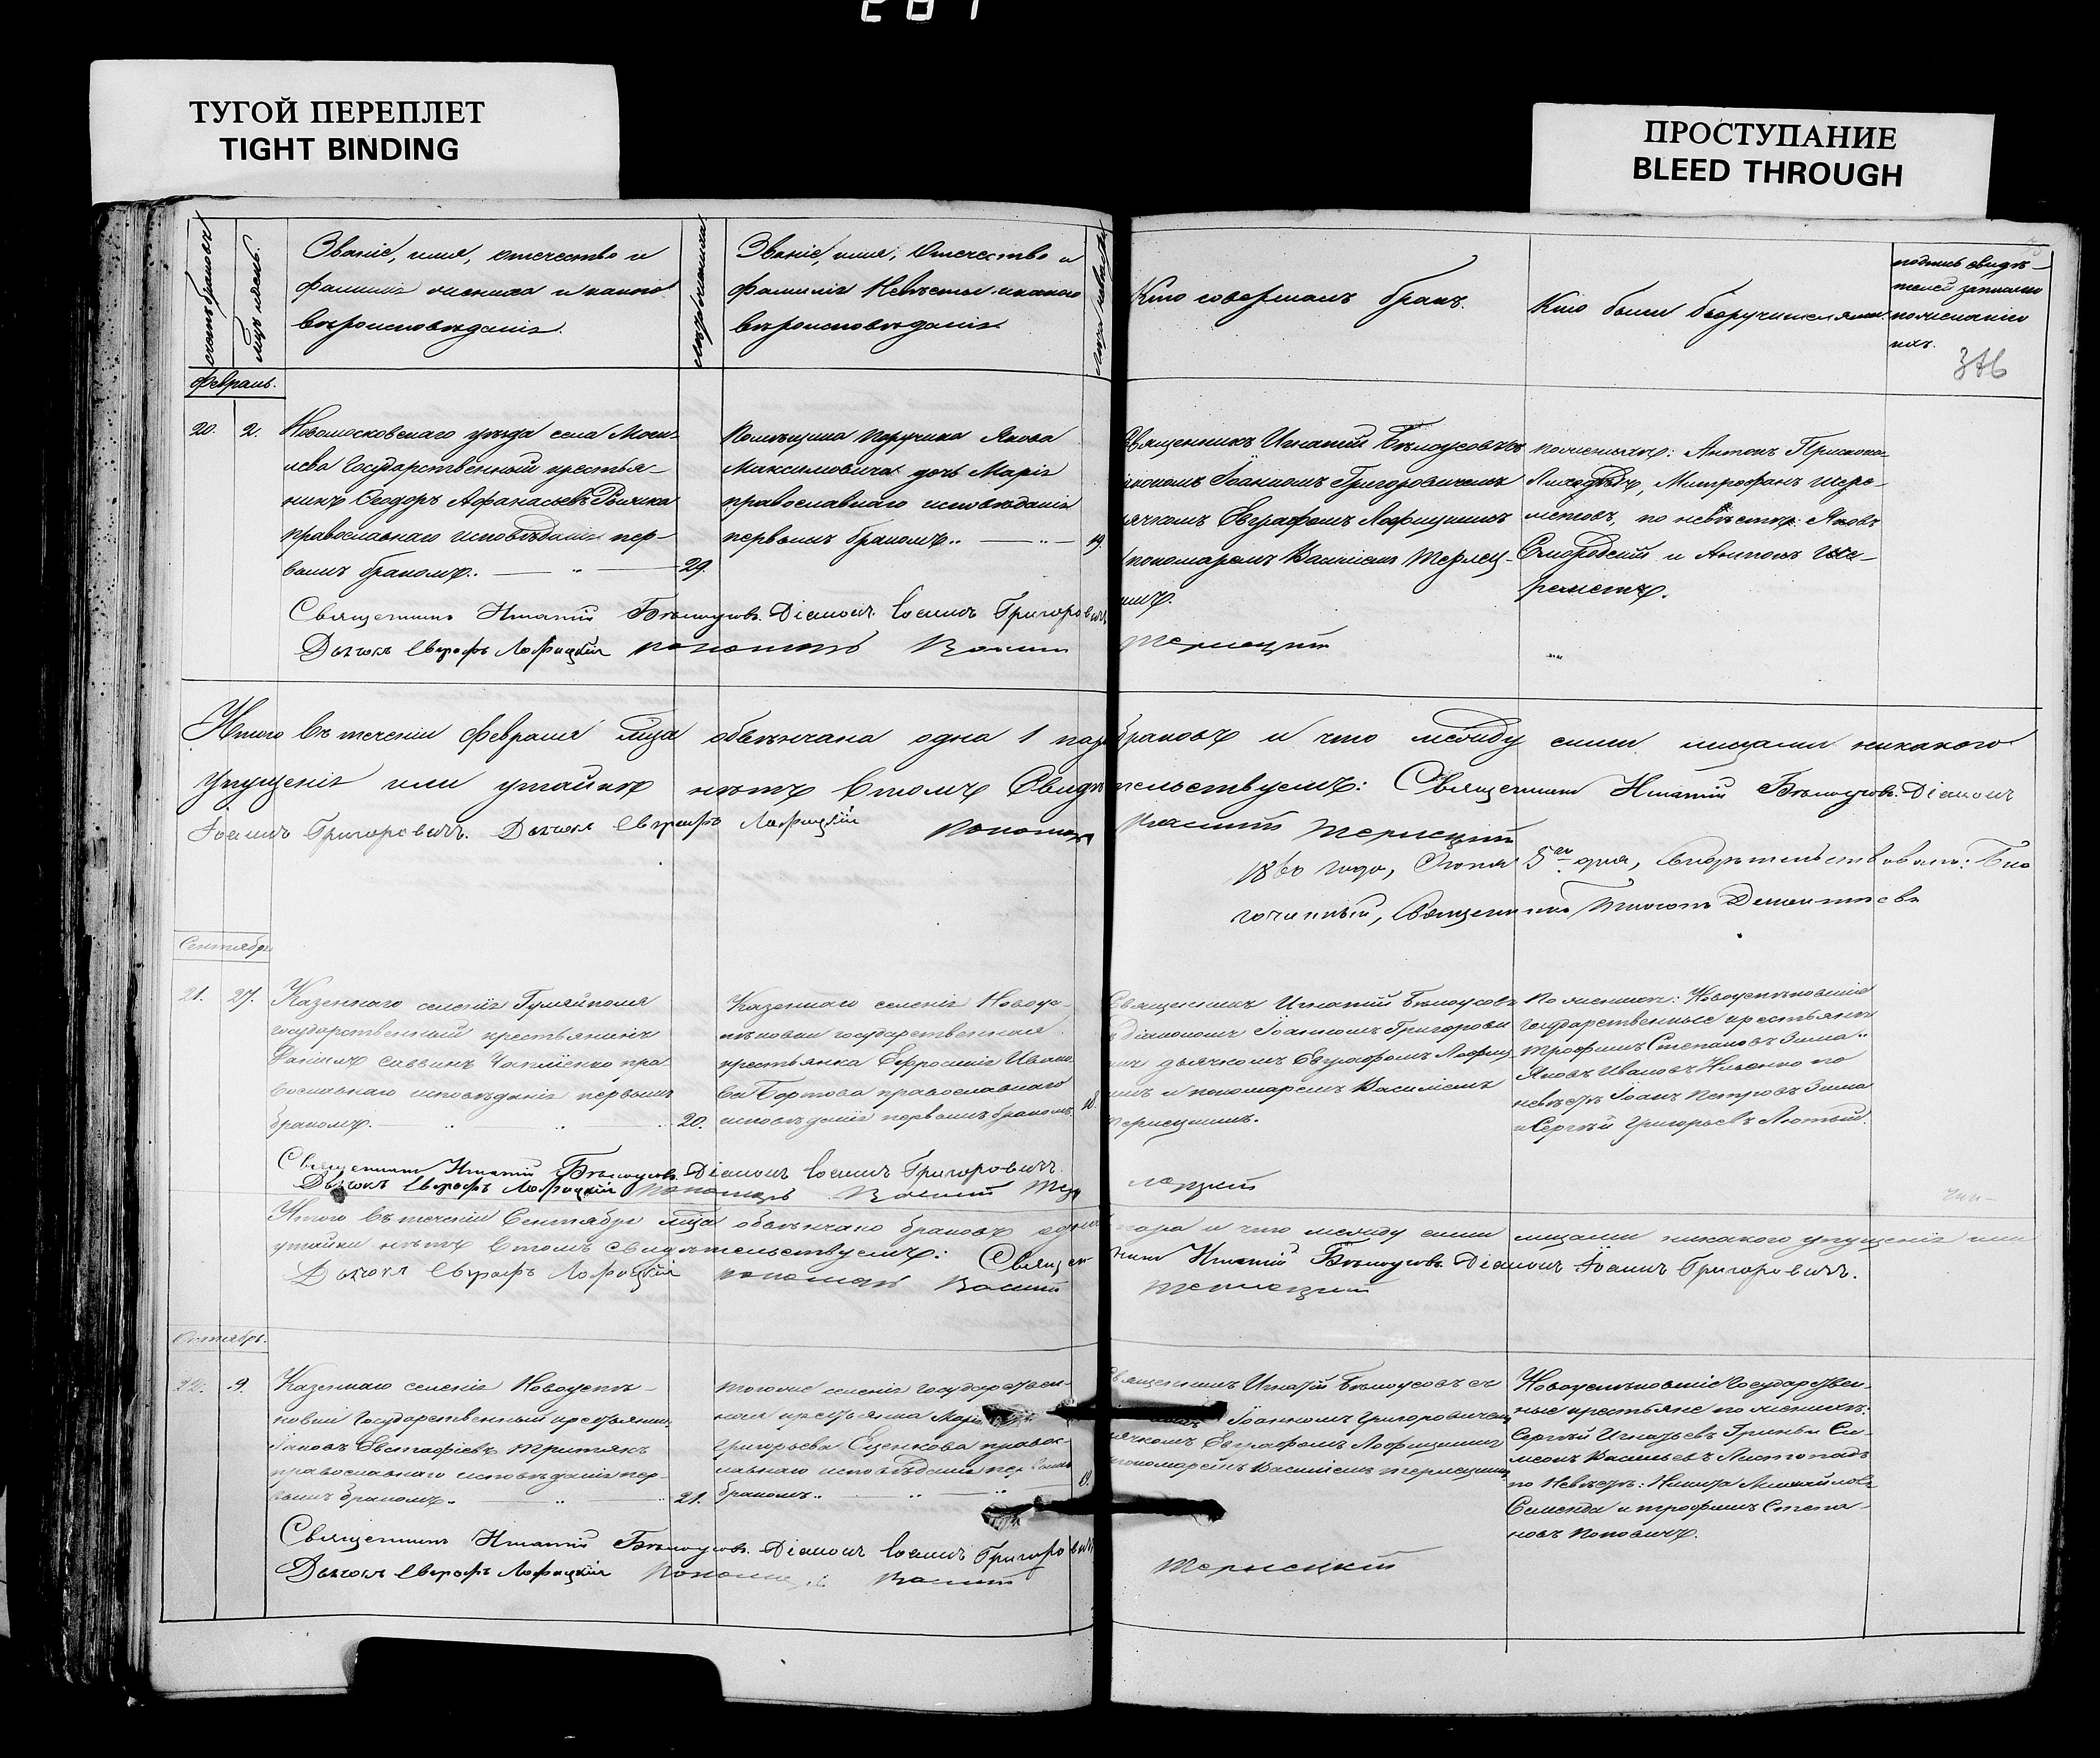 ТУГОЙ ПЕРЕПЛЕТ
TIGHT BINDING
ПРОСТУПАНИЕ
BLEED THROUGH
счетъ браковъ
Мцъ и день.
Званіе, имя, отчество и
фамилія жениха и какого
вѣроисповѣданія.
лѣта жениха
Званіе, имя, Отечество и
фамилія Невѣсты и какого
вѣроисповѣданія
лѣта невѣсты
Кто совершалъ бракъ.
Кто были поручителями
подпись свидѣ-
телей записи
по желанію
ихъ.
Февраль.
20.
2.
Новомосковскаго уѣзда села Моги-
лева Государственный крестья-
нинъ Ѳеодоръ Аѳанасьевъ
православнаго исповѣданія пер-
вымъ бракомъ..
29.
Помѣщика Поручика Якова
Максимовича дочь Марія
православнаго исповѣданія
первымъ бракомъ..
19.
Священникъ Игнатій Бѣлоусовъ съ
діакономъ Іоанномъ Григоровичемъ
дьячкомъ Евграфомъ Лофицкимъ
пономаремъ Василіемъ Терлец-
кимъ.
по женихѣ: Антонъ
Митрофанъ Шере-
метовъ, по невѣстѣ: Яковъ
и Антонъ Ше-
реметъ.
Священникъ Игнатій Бѣлоусовъ. Діаконъ Іоаннъ Григоровичъ
Дьячокъ Евграфъ Лофицкій пономарь Василій Терлецкій
Итого въ теченіи Февраля мѣца обвѣнчана одна 1 пара браковъ и что между сими лицами никакого
упущенія или утайки нѣтъ в томъ Свидѣтельствуемъ: Священникъ Игнатій Бѣлоусовъ. Діаконъ
Іоаннъ Григоровичъ. Дьячокъ Евграфъ Лофицкій Пономарь Василій Терлецкій
1860 года, 5го дня, Свидѣтельствовалъ: Бла
гочинный, Священникъ
Сентябрь
21.
27.
Казеннаго селенія Гуляйполя
государственный крестьянинъ
Даніилъ Саввинъ пра-
вославнаго исповѣданія первымъ
бракомъ.
20.
Казеннаго селенія Новоус-
пѣновки государственная
крестьянка Евфросинія Ивано-
ва православнаго
исповѣданія первымъ бракомъ.
18.
Священникъ Игнатій Бѣлоусовъ
съ діакономъ Іоанномъ Григорови
чемъ дьячкомъ Евграфомъ Лофиц-
кимъ и пономаремъ Василіемъ
Терлецкимъ.
По женихѣ: Новоуспѣновскіе
государственные крестьяне
Трофимъ Степановъ Зима
Яковъ Ивановъ по
невѣстѣ Іоанъ Петровъ Зима
и Сергѣй Григорьевъ Лютый.
Священникъ Игнатій Бѣлоусовъ. Діаконъ Іоаннъ Григоровичъ.
Дьячокъ Евграфъ Лофицкій пономарь Василій Терлецкій
Итого въ теченіи Сентября мѣца обвѣнчано браковъ одна пара и что между сими лицами никакого упущенія или
утайки нѣтъ в томъ свидѣтельствуемъ: Священникъ Игнатій Бѣлоусовъ. Діаконъ Іоаннъ Григоровичъ.
Дьячокъ Евграфъ Лофицкій пономарь Василій Терлецкій
Октябрь.
22.
9.
Казеннаго селенія Новоуспѣ-
новки Государственный крестьянинъ
Іаковъ Евстафіевъ Третякъ
православнаго исповѣданія пер-
вымъ бракомъ..
21.
тогоже селенія государствен-
ная крестьянка Марія
Григорьева Еценкова правос-
лавнаго исповѣданія первымъ
бракомъ..
19.
Священникъ Игнатій Бѣлоусовъ съ
Іоанномъ Григоровичемъ
дьячкомъ Евграфомъ Лофицкимъ
пономаремъ Василіемъ Терлецкимъ
Новоуспѣновскіе государствен-
ные крестьяне по женихѣ:
Сергѣй Игнатьевъ Гринь Си-
меонъ Васильевъ Листопадъ
по Невѣстѣ: Никита Михайловъ
и Трофимъ Степа-
новъ Поповичъ.
Священникъ Игнатій Бѣлоусовъ. Діаконъ Іоаннъ Григоровичъ
Дьячокъ Евграфъ Лофицкій Пономарь Василій Терлецкій